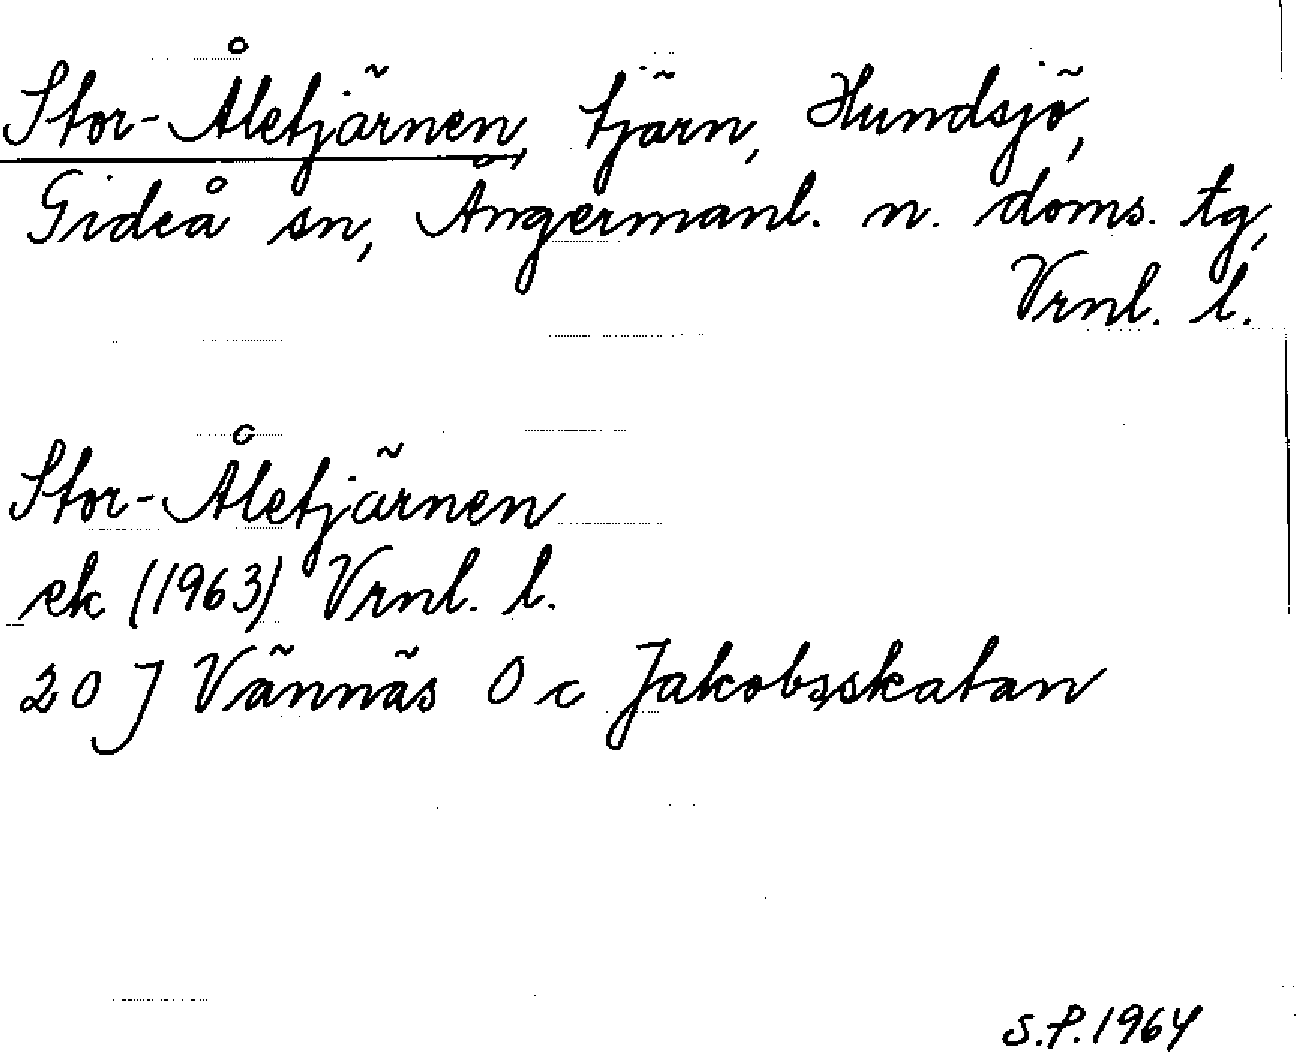 Stor-Åletjärnen, tjärn, Hundsjö,
Gideå sn, Ångermanl. n. doms. tg,
Vrnl. l.
Stor-Åletjärnen
ek (1963) Vrnl. l.
20 J Vännäs O c Jakobsskatan
S.P. 1964